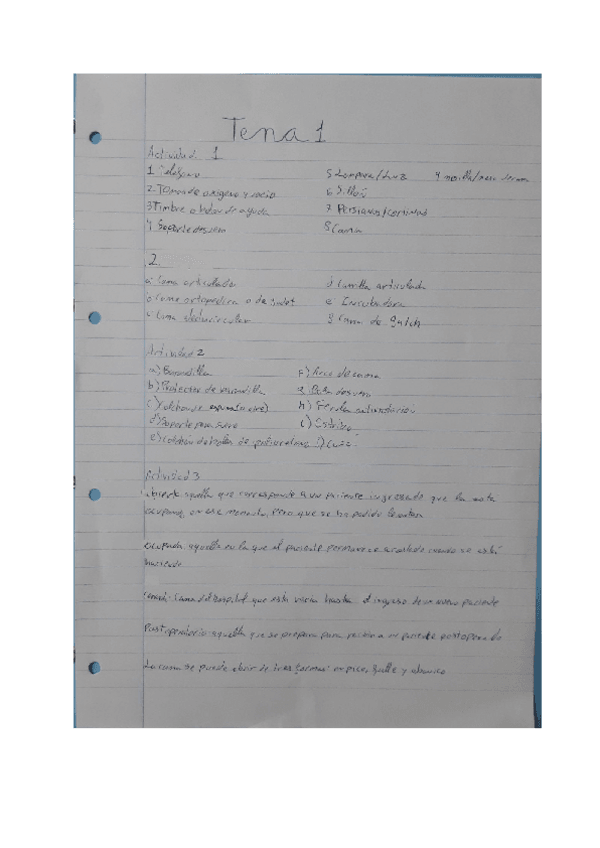 Tema 1
Actividad 1
1 Teléfono 5 Lampara/Luz 9 mesilla/mesa
2. Toma de oxigeno y vacio 6 Sillón
3 Timbre o de ayuda 7 Persianas/cortinas
4 Soporte de suero 8 Cama
2.
a Cama articulada d Camilla articulada
b Cama ortopedica o de Judet e Incubadora
c Cama electrocircular g Cama de
Actividad 2
a) Barandilla F) Arco de cama
b) Protector de barandilla g Palo de suero
c) Colchon de espuma h) Ferula
d) Soporte para suero i) Estribo
e) colchón de de j) Cuña
Actividad 3
Abierta: aquella que corresponde a un paciente ingresado que la esta
ocupando en ese momento, pero que se ha podido levantar
Ocupada: aquella en la que el paciente permanece acostado cuando se está
haciendo
Cerrada: Cama del hospital que está vacía hasta el ingreso de un nuevo paciente
Postoperatorio: aquella que se prepara para recibir a un paciente postoperado
La cama se puede abrir de tres formas: en pico, fuelle y abanico